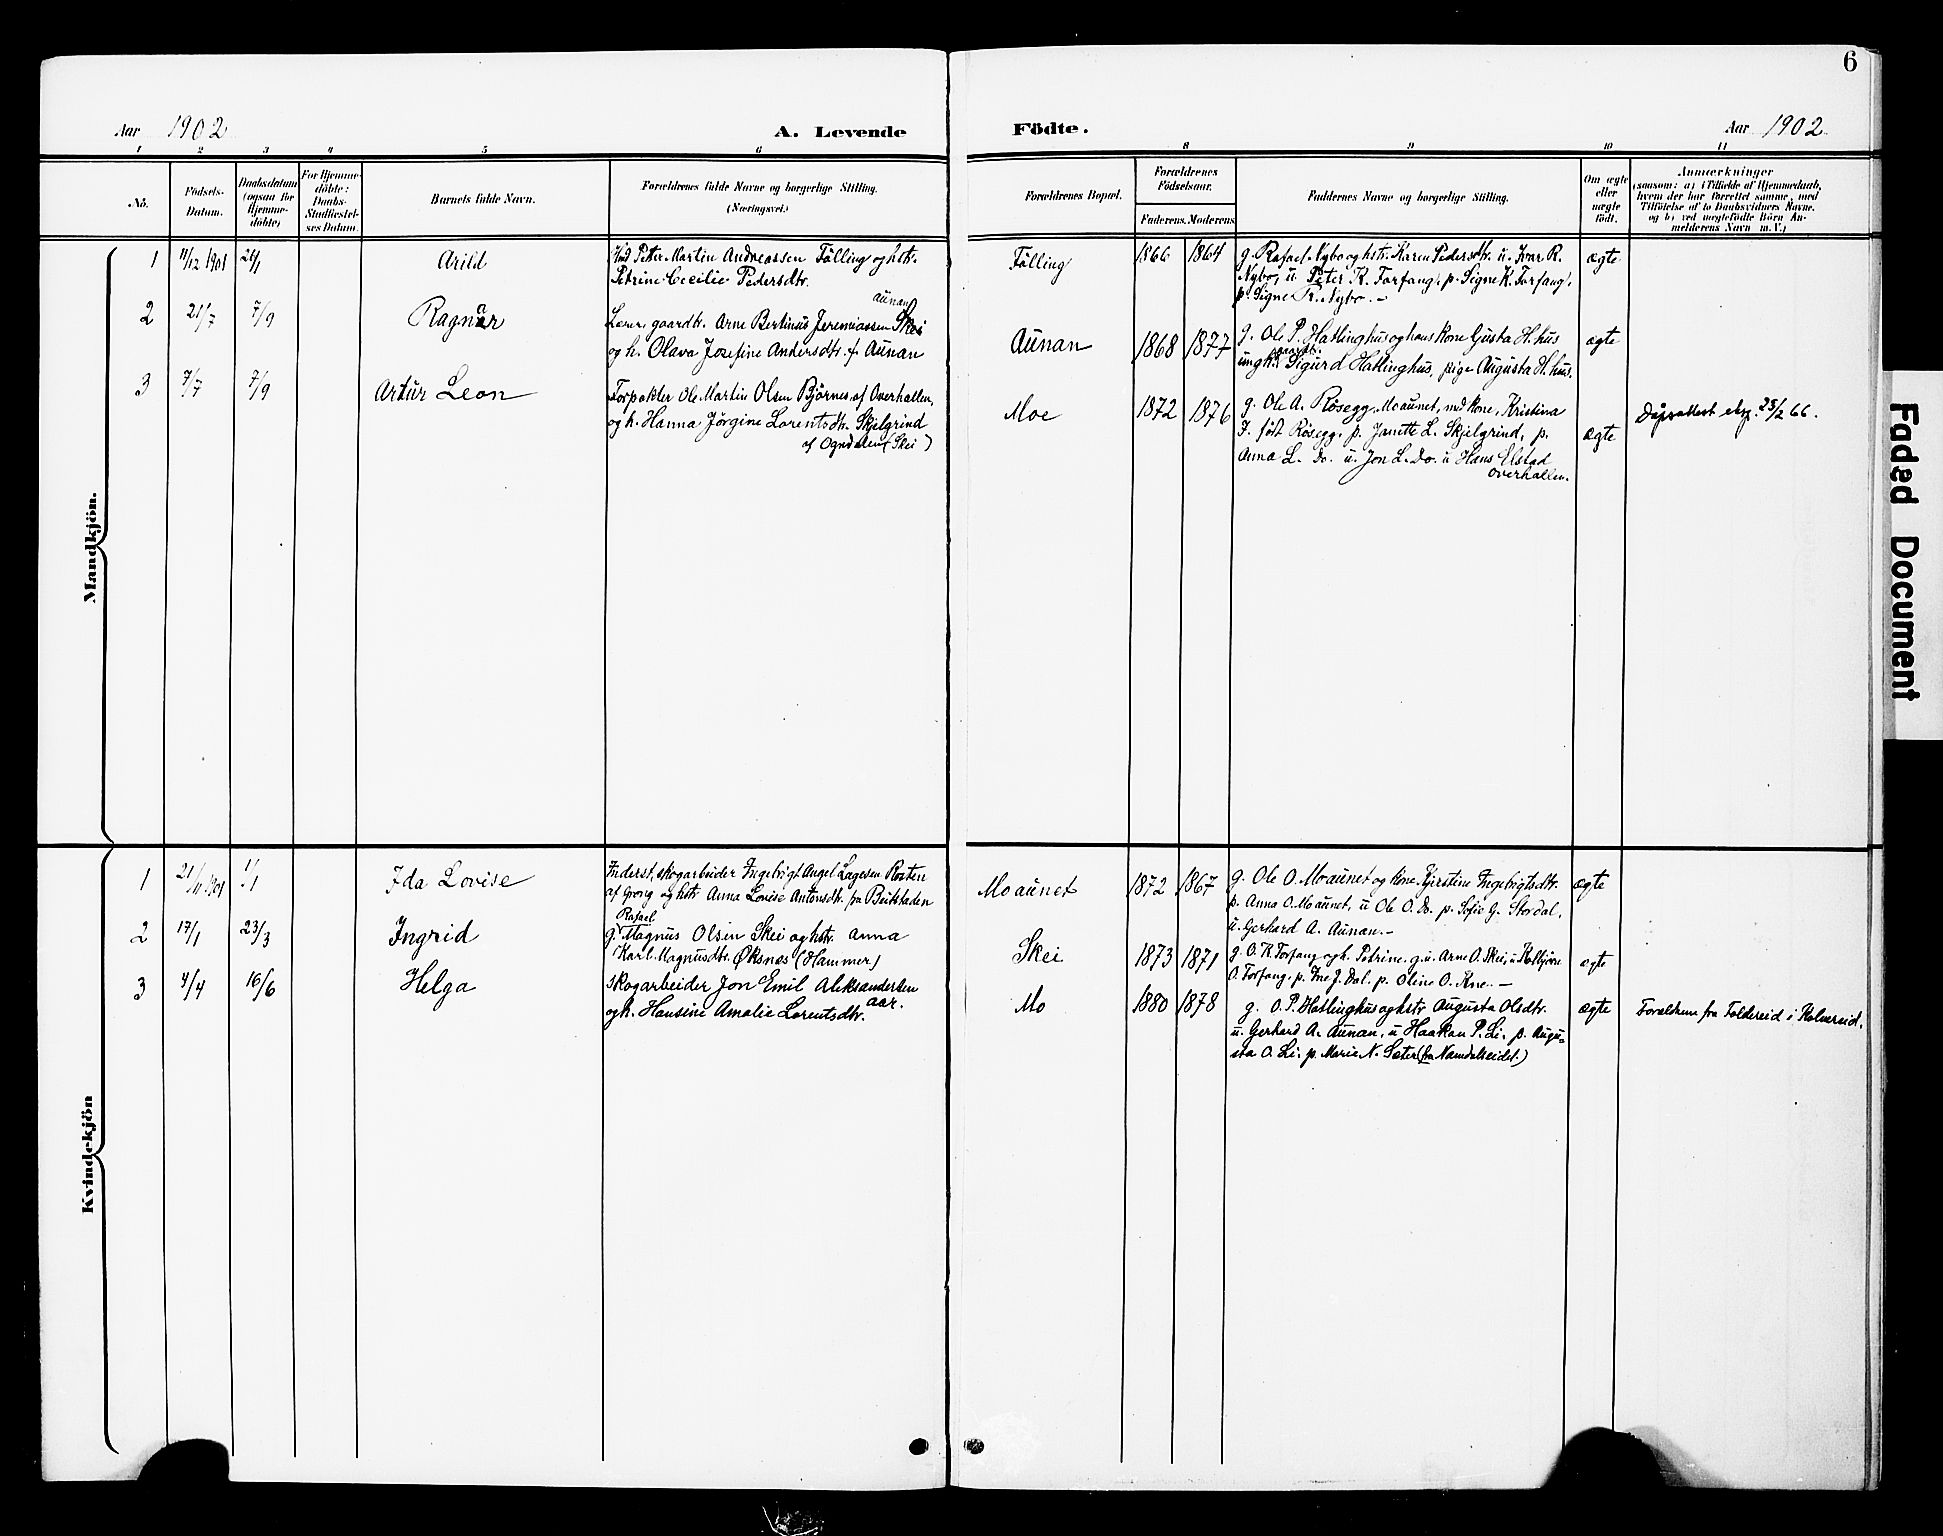 6
Aar 1902
A. Levende
Födte.
Aar 1902
1 2 3 4 5 6 8 9 10 11
No.
Födsels-
Datum.
Daabsdatum
(ogsaa for
Hjemme-
döbte)
For Hjemme-
döbte:
Daabs-
Stadfæstel-
ses Datum.
Barnets fulde Navn.
Forældrenes fulde Navne og borgerlige Stilling.
(Næringsvei.)
Forældrenes Bopæl.
Forældrenes
Födselsaar.
Faderens. Moderens.
Faddernes Navne og borgerlige Stilling.
Om ægte
eller
uægte
födt.
Anmærkninger
(saasom: a) i Tilfælde af Hjemmedaab,
hvem der har forrettet samme, med
Tilföielse af to Daabsvidners Navne.
og b) ved uægtefödte Börn An-
melderens Navn m. V.)
Mandkjön.
1 11/12 1901 Arild
Petter Martin Andreassen Fölling og hstr.
Petrine Cecilie Pedersdtr.
Fölling 1866 1864
g. Rafael Nybo og hstr. Karen Pedersdtr. u. Ivar R.
Nybo, u. Peter K. Forfang, p. Signe K. Forfang,
p. Signe R. Nybo. –
ægte
2 21/7 7/9 Ragnar
aunan
Lærer, gaardbr. Arne Bertinus Jeremiassen Skei
og h. Olava Josefine Andersdtr. f. Aunan
Aunan 1868 1877
g. Ole P. Hatlinghus og hans kone Gusta H.hus
ungk. Sigurd Hatlinghus, pige Augusta H.hus.
ægte
3 7/7 7/9 Artur Leon
Forpakter Ole Martin Olsen Björnes af Overhallen,
og h. Hanna Jörgine Lorentsdtr. Skjelgrind
af Ogndalen (Skei)
Moe 1872 1876
g. Ole A. Rösegg, Moaunet, med kone, Kristina
J. födt Rösegg, p. Janette L. Skjelgrind, p.
Anna L. Do. u. Jon L. Do. u Hans Elstad
Overhallen.
ægte
Dåpsattest eksp. 25/2 66.
Kvindekjön
1 21/11 1901 1/1 Ida Lovise
Inderst, skogarbeider Ingebrigt Angel Lagesen Rosten
af Grong og hstr Anna Lovise Antonsdtr. fra Beitstaden
Moaunet 1872 1867
g. Ole O. Moaunet og kone Kjerstine Ingebrigtsdtr.
p. Anna O. Moaunet, u Ole O. Do. p. Sofie G. Stordal,
u. Gerhard A. Aunan. –
ægte
2 17/1 23/3 Ingrid
Rafael
g. Magnus Olsen Skei og hstr. Anna
Karl-Magnusdtr. Øksnes (Hammer)
Skei 1873 1871
g. O. K. Forfang og h. Petrine. g. u. Arne O. Skei, u Kolbjörn
O. Forfang, p. Ine J. Dal. p. Oline O. Kne. –
ægte
3 4/4 16/6 Helga
Skogarbeider Jon Emil Aleksandersen
og h. Hansine Amalie Lorentsdtr. aar.
Mo 1880 1878
g. O. P. Hatlinghus og hstr Augusta Olsdtr.
u. Gerhard A. Aunan, u Haakon P. Li. p. Augu-
sta O. Li. p. Marie N. Sæter (fra Namdalseidet.)
ægte
Forældrene fra Foldereid i Kolvereid.
Faded Document